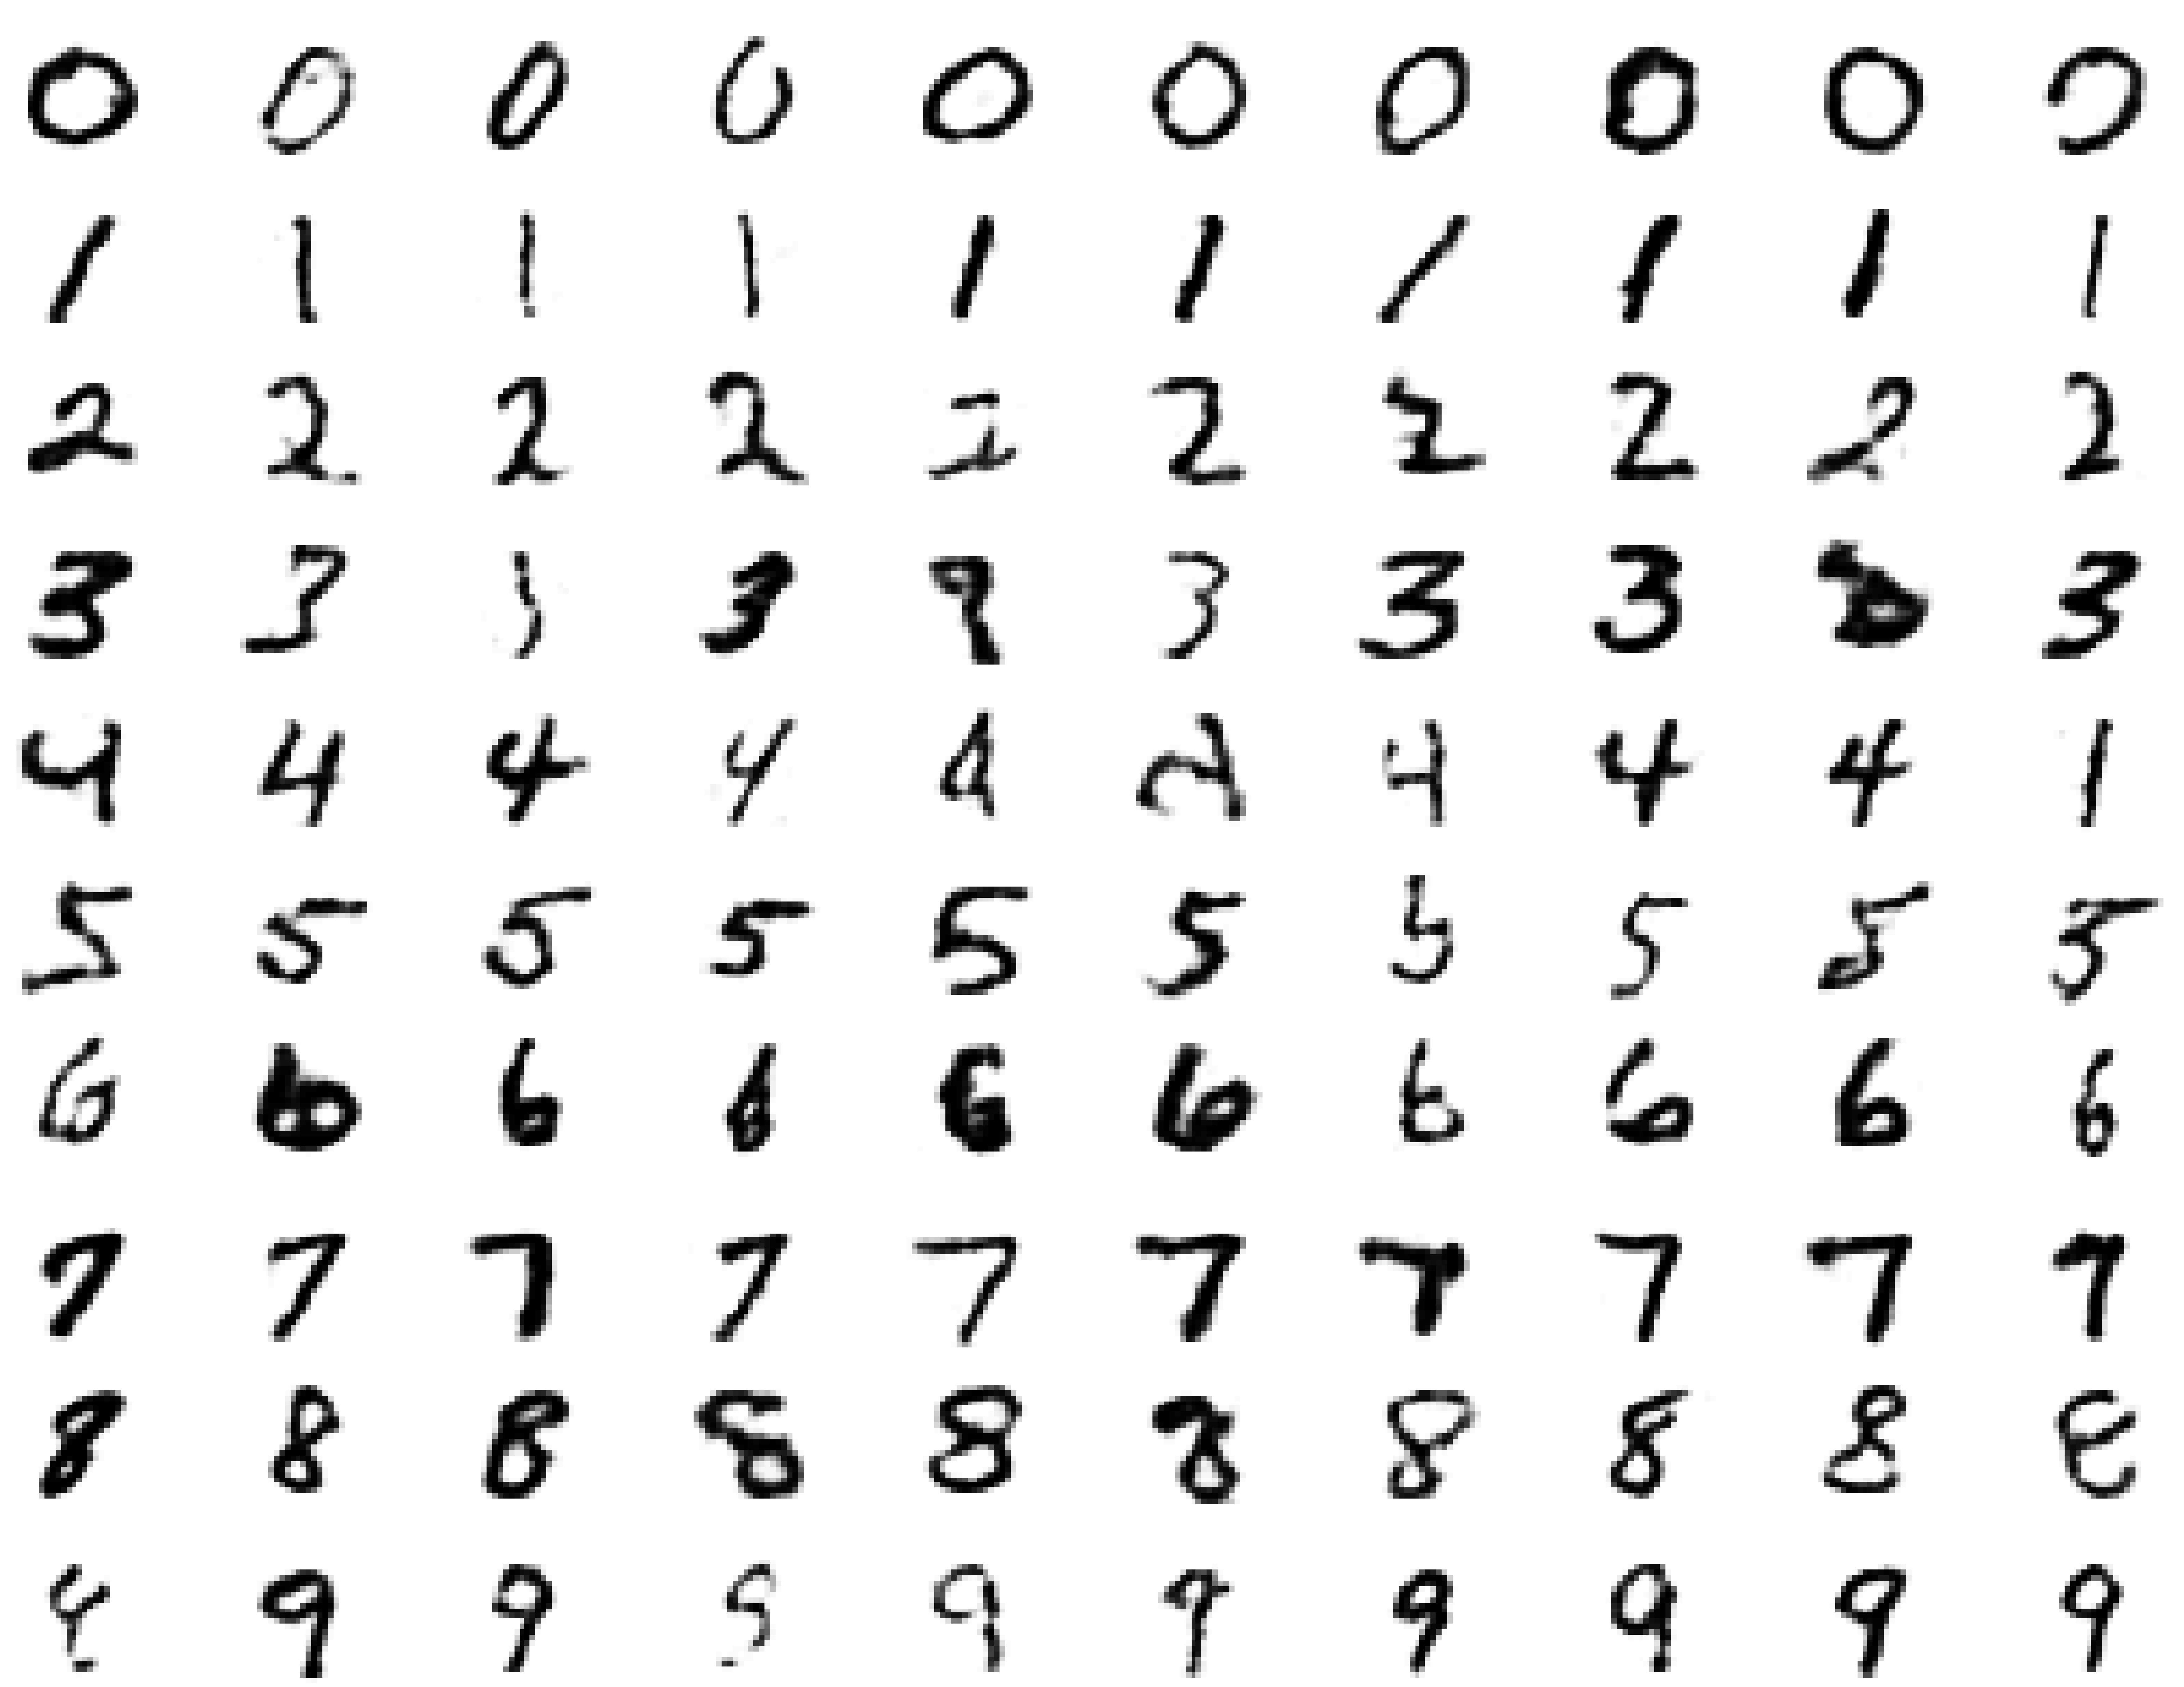 0 0 0 0 0 0 0 0 0 0
1 1 1 1 1 1 1 1 1 1
2 2 2 2 2 2 2 2 2 2
3 3 3 3 3 3 3 3
4 4 4 4 4 4 4 4 1
5 5 5 5 5 5 5 5 5 5
6 6 6 6 6 6 6 6 6 6
7 7 7 7 7 7 7 7 7 7
8 8 8 8 8 8 8 8 8 8
9 9 9 9 9 9 9 9 9